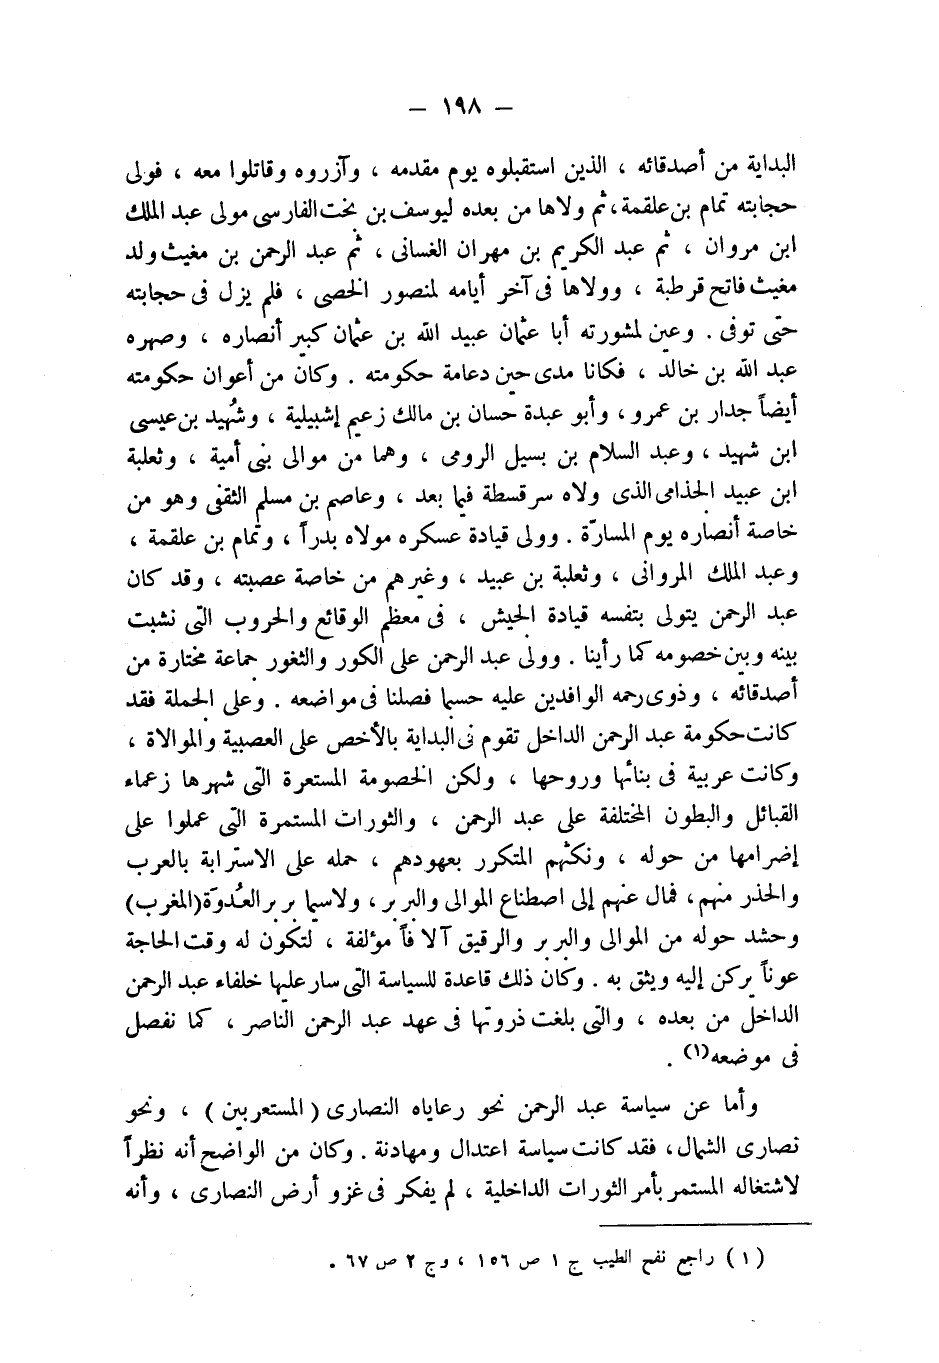 — ١٩٨ —
البداية من أصدقائه ، الذين استقبلوه يوم مقدمه ، وآزروه وقاتلوا معه ، فولى
حجابته تمام بن علقمة، ثم ولاها من بعده ليوسف بن بخت الفارسى مولى عبد الملك
ابن مروان ، ثم عبد الكريم بن مهران الغسانى ، ثم عبد الرحمن بن مغيث ولد
مغيث فاتح قرطبة ، وولاها فى آخر أيامه لمنصور الخصى ، فلم يزل فى حجابته
حتى توفى . وعين لمشورته أبا عثمان عبيد الله بن عثمان كبير أنصاره ، وصهره
عبد الله بن خالد ، فكانا مدى حين دعامة حكومته . وكان من أعوان حكومته
أيضاً جدار بن عمرو، وأبو عبدة حسان بن مالك زعيم إشبيلية ، وشُهيد بن عيسى
ابن شهيد ، وعبد السلام بن بسيل الرومى ، وهما من موالى بنى أمية ، وثعلبة
ابن عبيد الجذامى الذى ولاه سرقسطة فيما بعد ، وعاصم بن مسلم الثقفى وهو من
خاصة أنصاره يوم المسارّة . وولى قيادة عسكره مولاه بدراً ، وتمام بن علقمة ،
وعبد الملك المروانى ، وثعلبة بن عبيد ، وغيرهم من خاصة عصبته ، وقد كان
عبد الرحمن يتولى بنفسه قيادة الجيش ، فى معظم الوقائع والحروب التى نشبت
بينه وبين خصومه كما رأينا . وولى عبد الرحمن على الكور والثغور جماعة مختارة من
أصدقائه ، وذوى رحمه الوافدين عليه حسبما فصلنا فى مواضعه . وعلى الجملة فقد
كانت حكومة عبد الرحمن الداخل تقوم فى البداية بالأخص على العصبية والموالاة ،
وكانت عربية فى بنائها وروحها ، ولكن الخصومة المستعرة التى شهرها زعماء
القبائل والبطون المختلفة على عبد الرحمن ، والثورات المستمرة التى عملوا على
إضرامها من حوله ، ونكثهم المتكرر بعهودهم ، حمله على الاسترابة بالعرب
والحذر منهم، فمال عنهم إلى اصطناع الموالى والبربر، ولاسيما بربر العُدوَة (المغرب)
وحشد حوله من الموالى والبربر والرقيق آلافاً مؤلفة ، لتكون له وقت الحاجة
عوناً يركن إليه ويثق به . وكان ذلك قاعدة للسياسة التى سار عليها خلفاء عبد الرحمن
الداخل من بعده ، والتى بلغت ذروتها فى عهد عبد الرحمن الناصر ، كما نفصل
فى موضعه(١) .
وأما عن سياسة عبد الرحمن نحو رعاياه النصارى ( المستعربين ) ، ونحو
نصارى الشمال، فقد كانت سياسة اعتدال ومهادنة . وكان من الواضح أنه نظراً
لاشتغاله المستمر بأمر الثورات الداخلية ، لم يفكر فى غزو أرض النصارى ، وأنه
(١) راجع نفح الطيب ج ١ ص ١٥٦ ، وج ٢ ص ٦٧ .